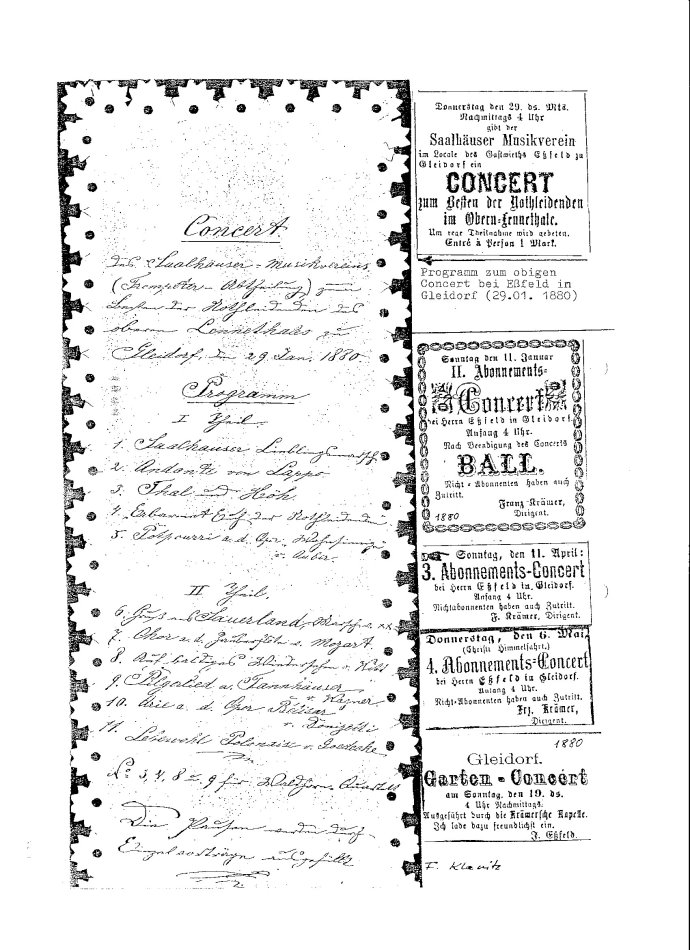 Concert
des Saalhauser-Musikvereins
(Trompeter-Abtheilung) zum
Besten der Nothleidenden des
obern Lennethales zu
Gleidorf, den 29 Jan. 1880
Programm
I Theil.
1. Saalhauser Lieblingsmarsch
2. Andante von
3. Thal und Höh
4. Erbarmt Euch der Nothleidenden
5. Potpourri a. d. Oper
v. Auber.
II Theil.
6. Gruß aus Sauerland, Marsch v.
7. Chor a. d. Zauberflöte v. Mozart.
8. Auf baldiges Wiedersehen v.
9. Pilgerlied a. Tannhäuser
v. Wagner
10. Arie a. d. Oper
v. Donizetti
11. Lebewohl Polonaise v.
No 3, 4, 8 u. 9 für Waldhorn-Quartett
Die Pausen werden durch
Einzelvorträge ausgefüllt
Donnerstag den 29. ds. Mts.
Nachmittags 4 Uhr
gibt der
Saalhäuser Musikverein
im Locale des Gastwirths Eßfeld zu
Gleidorf ein
CONCERT
zum Besten der Nothleidenden
im Obern-Lennethale.
Um rege Theilnahme wird gebeten.
Entré à Person 1 Mark.
Programm zum obigen
Concert bei Eßfeld in
Gleidorf (29.01. 1880)
Sonntag den 11. Januar
II. Abonnements-
Concert
bei Herrn Eßfeld in Gleidorf.
Anfang 4 Uhr.
Nach Beendigung des Concerts
BALL.
Nicht-Abonnenten haben auch
Zutritt.
Franz Krämer,
1880 Dirigent.
Sonntag, den 11. April:
3. Abonnements-Concert
bei Herrn Eßfeld in Gleidorf.
Anfang 4 Uhr.
Nichtabonnenten haben auch Zutritt.
F. Krämer, Dirigent.
Donnerstag, den 6. Mai,
(Christi Himmelfahrt.)
4. Abonnements-Concert
bei Herrn Eßfeld in Gleidorf.
Anfang 4 Uhr.
Nicht-Abonnenten haben auch Zutritt.
Frz. Krämer,
Dirigent.
1880
Gleidorf.
Garten-Concert
am Sonntag, den 19. ds.
4 Uhr Nachmittags.
Ausgeführt durch die Krämersche Kapelle.
Ich lade dazu freundlichst ein.
J. Eßfeld.
F. Klawitz